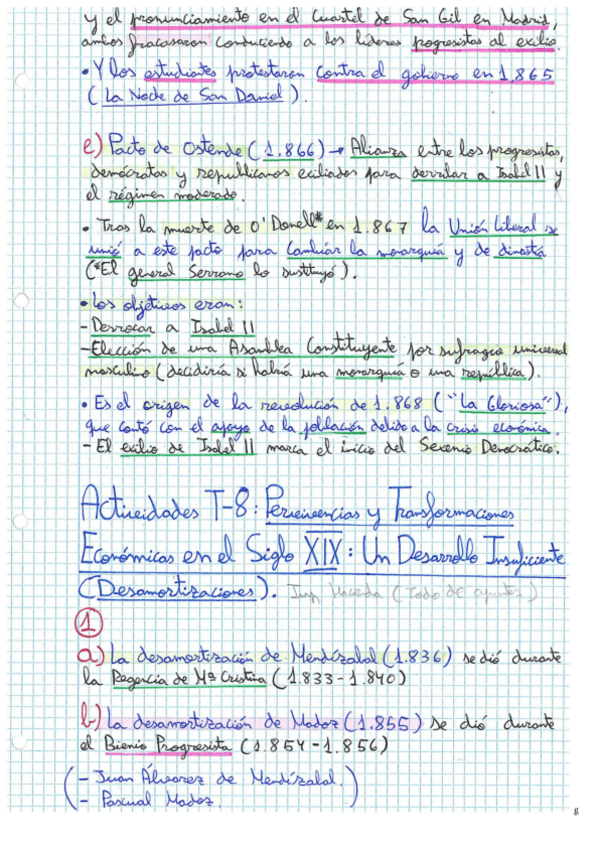 y el pronunciamiento en el cuartel de San Gil en Madrid,
ambos fracasaron conduciendo a los líderes progresistas al exilio.
• Y los estudiantes protestaron contra el gobierno en 1.865
(La Noche de San Daniel).
e) Pacto de Ostende (1.866) → Alianza entre los progresistas,
demócratas y republicanos exiliados para derribar a Isabel II y
el régimen moderado.
• Tras la muerte de O'Donell* en 1.867 la Unión Liberal se
unió a este pacto para cambiar la monarquía y de dinastía
(*El general Serrano lo sustituyó).
• Los objetivos eran:
- Derrocar a Isabel II
- Elección de una Asamblea Constituyente por sufragio universal
masculino (decidiría si habría una monarquía o una república).
• Es el origen de la revolución de 1.868 ("La Gloriosa"),
que contó con el apoyo de la población debido a la crisis económica.
- El exilio de Isabel II marca el inicio del Sexenio Democrático.
Actividades T-8: Pervivencias y Transformaciones
Económicas en el Siglo XIX: Un Desarrollo Insuficiente
(Desamortizaciones). (Todo de apuntes)
1
a) La desamortización de Mendizabal (1.836) se dió durante
la Regencia de Mª Cristina (1.833-1.840)
b) La desamortización de Madoz (1.855) se dió durante
el Bienio Progresista (1.854-1.856)
(- Juan Álvarez de Mendizabal.)
- Pascual Madoz.
8